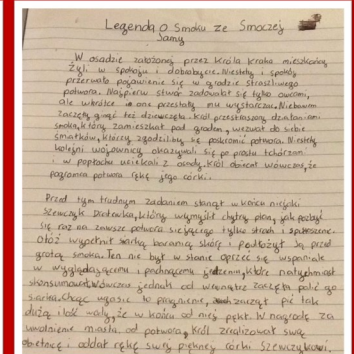 Legenda o Smoku ze Smoczej
Jamy
W osadzie założonej przez Króla Kraka mieszkańcy
żyli w spokoju i dobrobycie. Niestety i spokój
przerwało pojawienie się w grodzie straszliwego
potwora. Najpierw stwór zadowalał się tylko owcami,
ale wkrótce i one przestały mu wystarczać. Niebawem
zaczęły ginąć też dziewczęta. Król przestraszony działaniami
smoka, który zamieszkał pod grodem, wezwał do siebie
śmiałków, którzy zgodziliby się poskromić potwora. Niestety
kolejni wojownicy okazywali się po prostu tchórzami
i w popłochu uciekali z osady. Król obiecał wówczas, że
pogromca potwora rękę jego córki.
Przed tym trudnym zadaniem stanął w końcu niejaki
Szewczyk Dratewka, który wymyślił chytry plan, jak pozbyć
się raz na zawsze potwora siejącego tylko strach i spustoszenie.
Otóż wypchał siarką baranią skórę i podłożył ją przed
grotą smoka. Ten nie był w stanie oprzeć się wspaniale
wyglądającemu i pachnącemu jedzeniu, które natychmiast
skonsumował. Wówczas jednak od wewnątrz zaczęła palić go
siarka. Chcąc ugasić to pragnienie, zaczął pić tak
dużą ilość wody, że w końcu od niej pękł. W nagrodę za
uwolnienie miasta od potwora, Król zrealizował swą
obietnicę i oddał rękę swej pięknej córki Szewczykowi.